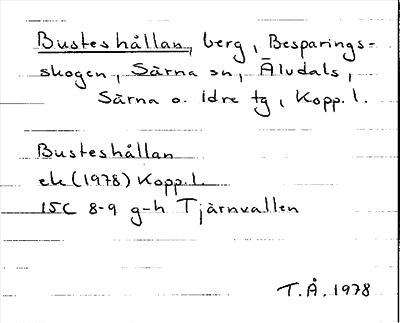 Busteshållan, berg, Besparings-
skogen, Särna sn, Älvdals,
Särna o. Idre tg, Kopp. l.
Busteshållan
ek (1978) Kopp. l.
15C 8-9 g-h Tjärnvallen
T.Å. 1978